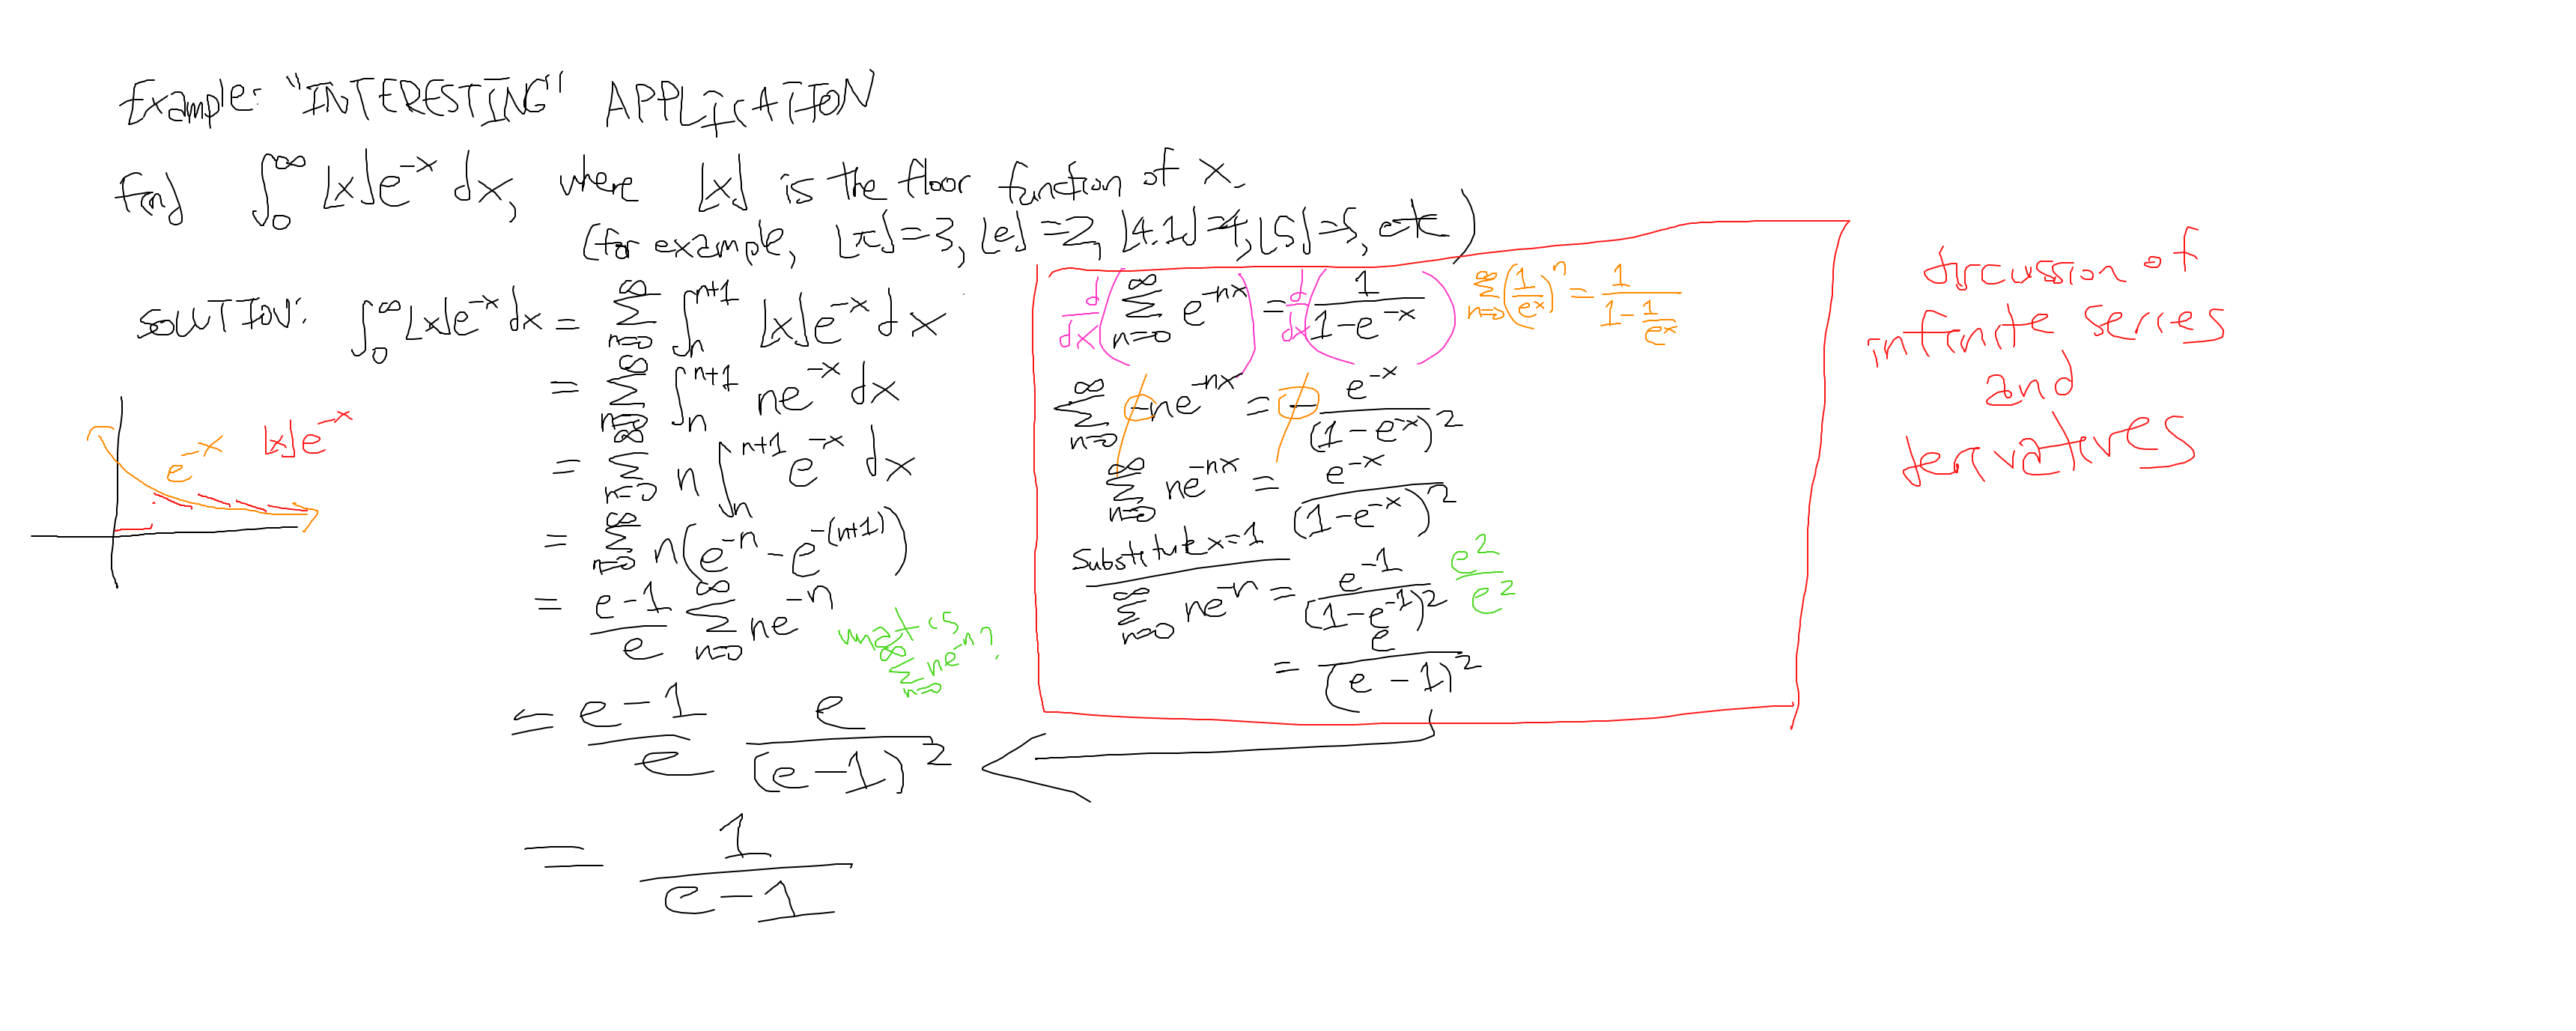 Example: "INTERESTING" APPLICATION
Find ∫₀^∞ ⌊x⌋e^{-x} dx, where ⌊x⌋ is the floor function of x.
(for example, ⌊π⌋=3, ⌊e⌋=2, ⌊4.1⌋=4, ⌊5⌋=5, etc)
SOLUTION: ∫₀^∞ ⌊x⌋e^{-x} dx = ∑_{n=0}^∞ ∫_n^{n+1} ⌊x⌋e^{-x} dx
= ∑_{n=0}^∞ ∫_n^{n+1} ne^{-x} dx
= ∑_{n=0}^∞ n ∫_n^{n+1} e^{-x} dx
= ∑_{n=0}^∞ n(e^{-n} - e^{-(n+1)})
= (e-1)/e ∑_{n=0}^∞ ne^{-n}
what is
∑_{n=0}^∞ ne^{-n}?
= (e-1)/e e/(e-1)^2
= 1/(e-1)
e^{-x}
⌊x⌋e^{-x}
d/dx (∑_{n=0}^∞ e^{-nx}) = d/dx (1/(1-e^{-x}))
∑_{n=0}^∞ (1/e^x)^n = 1/(1-1/e^x)
∑_{n=0}^∞ -ne^{-nx} = - e^{-x}/(1-e^{-x})^2
∑_{n=0}^∞ ne^{-nx} = e^{-x}/(1-e^{-x})^2
Substitute x=1
∑_{n=0}^∞ ne^{-n} = e^{-1}/(1-e^{-1})^2 e^2/e^2
= e/(e-1)^2
discussion of
infinite series
and
derivatives